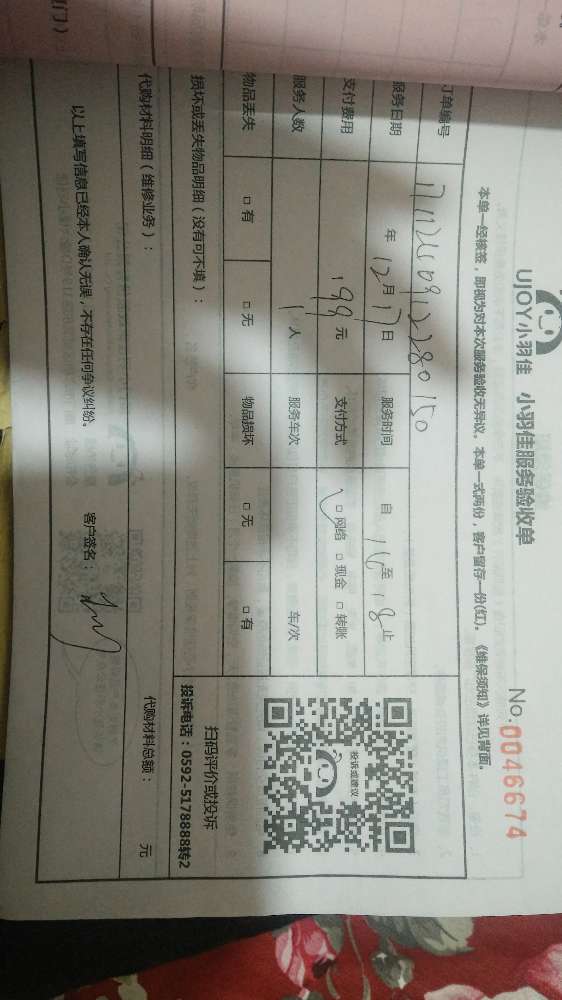 UJOY小羽佳 小羽佳服务验收单
No.0046674
本单一经核签，即视为对本次服务验收无异议。本单一式两份，客户留存一份(红)。《维保须知》详见背面。
订单编号
服务日期 年 12月17日 服务时间 自 16 至 18 止
支付费用 199元 支付方式 □网络 □现金 □转账
服务人数 1人 服务车次 车/次
物品丢失 □有 □无 物品损坏 □无 □有
投诉或建议
扫码评价或投诉
投诉电话：0592-5178888转2
损坏或丢失物品明细（没有可不填）：
代购材料明细（维修业务）：
代购材料总额： 元
以上填写信息已经本人确认无误，不存在任何争议纠纷。 客户签名：